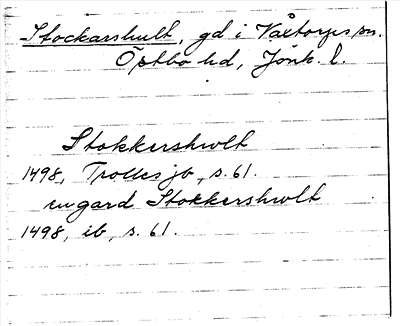 Stockarshult, gd i Våxtorps sn.
Östbo hd, Jönk. l.
Stokkershwlt
1498, Trolles jb, s. 61.
en gard Stokkershwlt
1498, ib, s. 61.